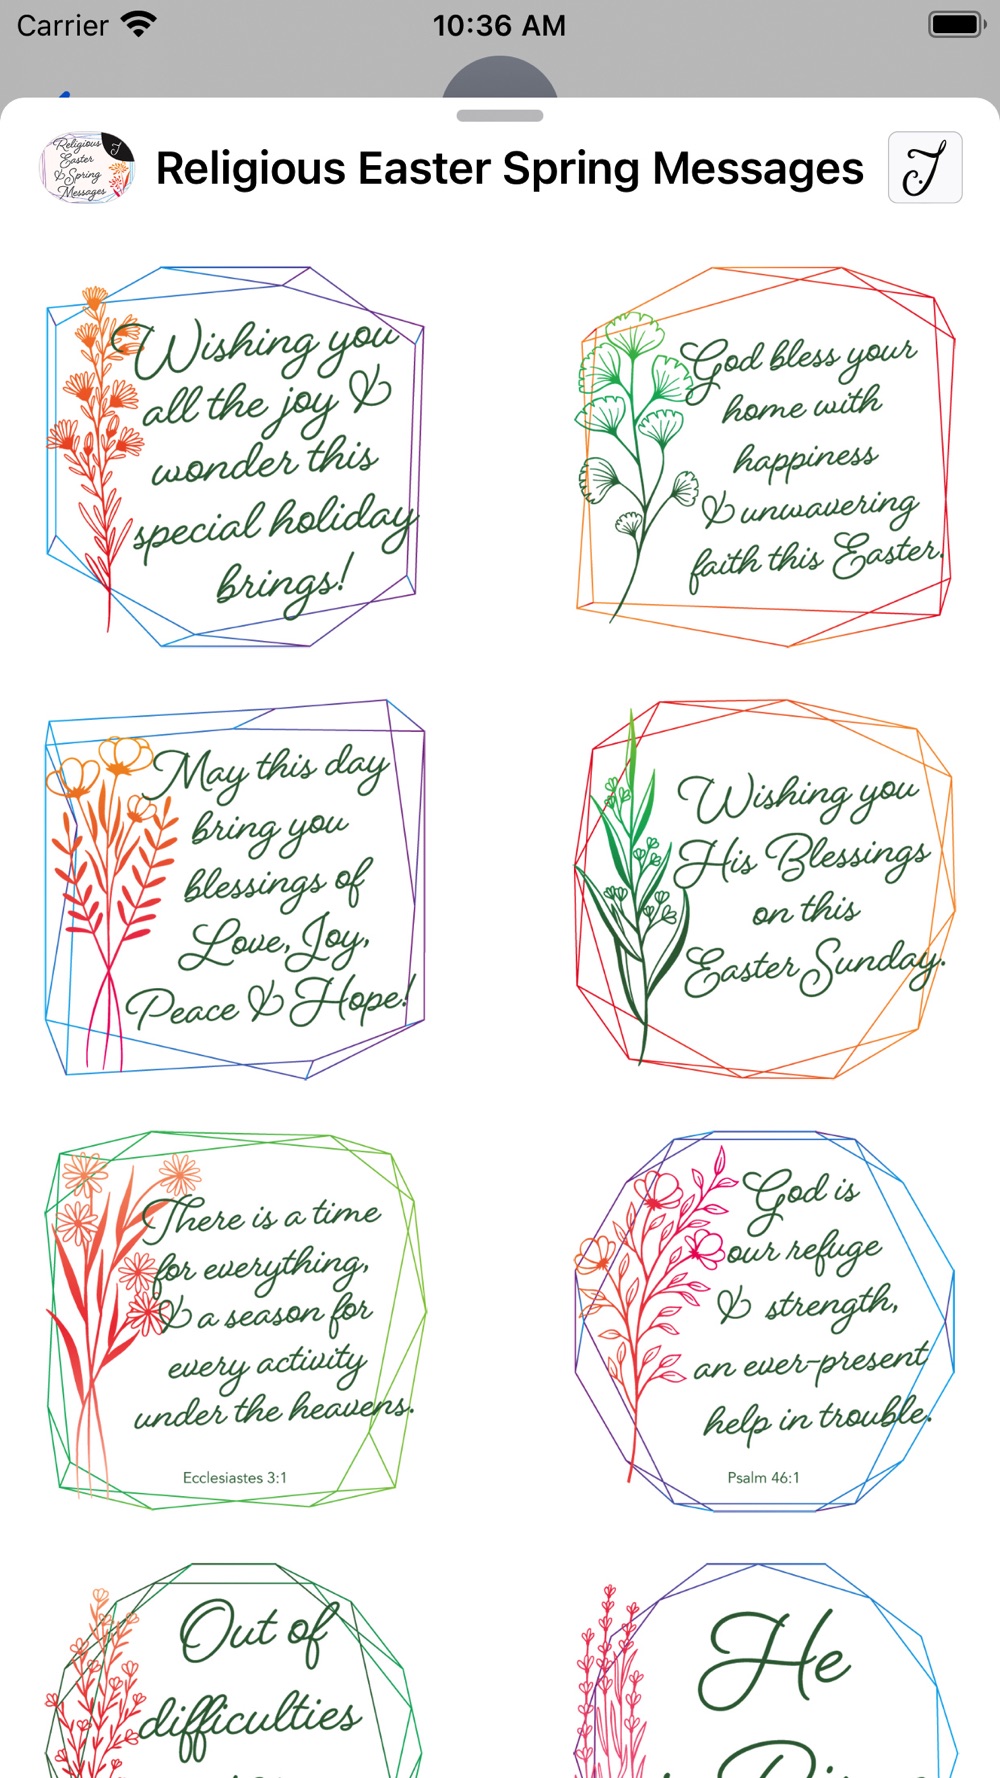 Carrier
10:36 AM
Religious
Easter
& Spring
Messages
J
Religious Easter Spring Messages
J
Wishing you
all the joy &
wonder this
special holiday
brings!
God bless your
home with
happiness
& unwavering
faith this Easter.
May this day
bring you
blessings of
Love, Joy,
Peace & Hope!
Wishing you
His Blessings
on this
Easter Sunday.
There is a time
for everything,
& a season for
every activity
under the heavens.
Ecclesiastes 3:1
God is
our refuge
& strength,
an ever-present
help in trouble.
Psalm 46:1
Out of
difficulties
He